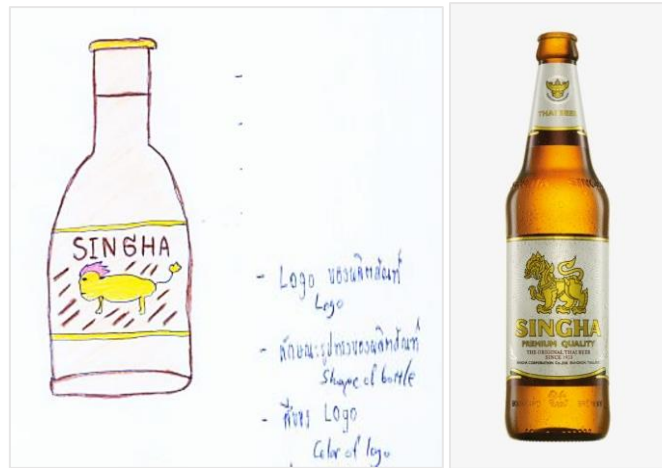 SINGHA
- Logo ของผลิตภัณฑ์
Logo
- ลักษณะรูปทรงของผลิตภัณฑ์
Shape of bottle
- สีของ Logo
Color of logo
THAI BEER
SINGHA
PREMIUM QUALITY
THE ORIGINAL THAI BEER
SINCE 1933